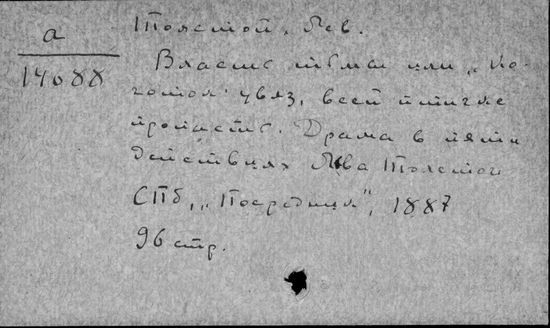 а
14088
Толстой, Лев.
Власть тьмы или "Ко-
готок увяз, всей птичке
пропасть". Драма в пяти
действиях Льва Толстого
СПб, "Посредник", 1887
96 стр.